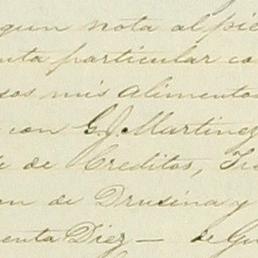 egun nota al pie
nta particular co
sos mis alimentos
con G. J. Martinez
e de Creditos, Tra
n de Drusina y
enta Diez — de Gu